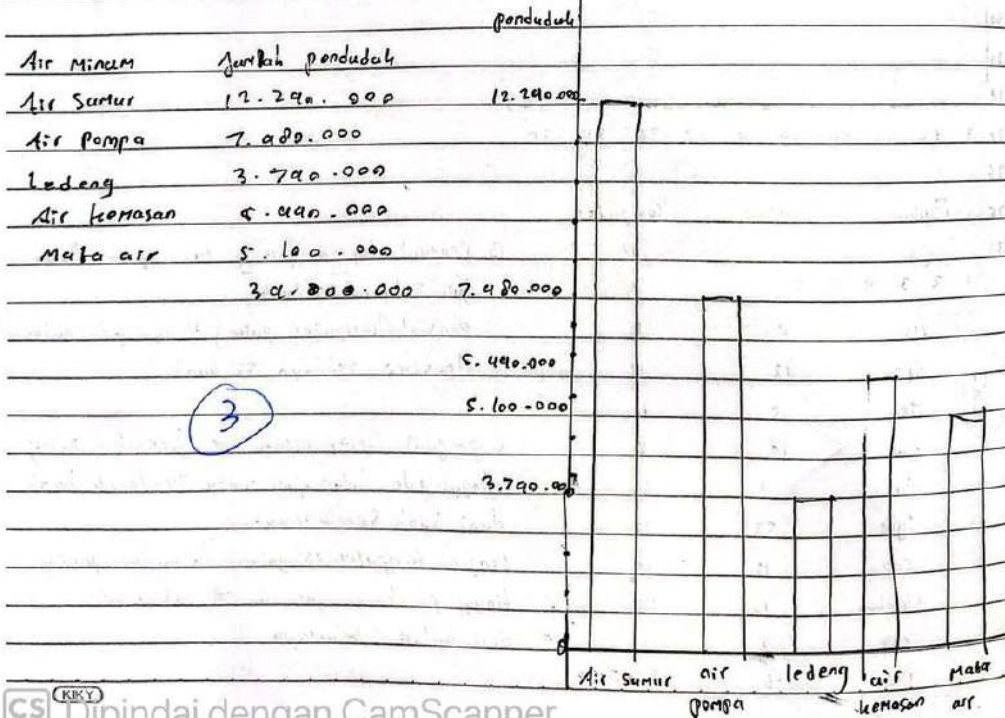 penduduk
Air Minum Jumlah penduduk
Air Sumur 12.290.000
Air Pompa 7.480.000
Ledeng 3.790.000
Air kemasan 5.490.000
Mata air 5.100.000
12.290.000
7.480.000
5.490.000
5.100.000
3.790.000
0
3
Air Sumur air pompa ledeng air kemasan Mata air
KIKY
CS Dipindai dengan CamScanner